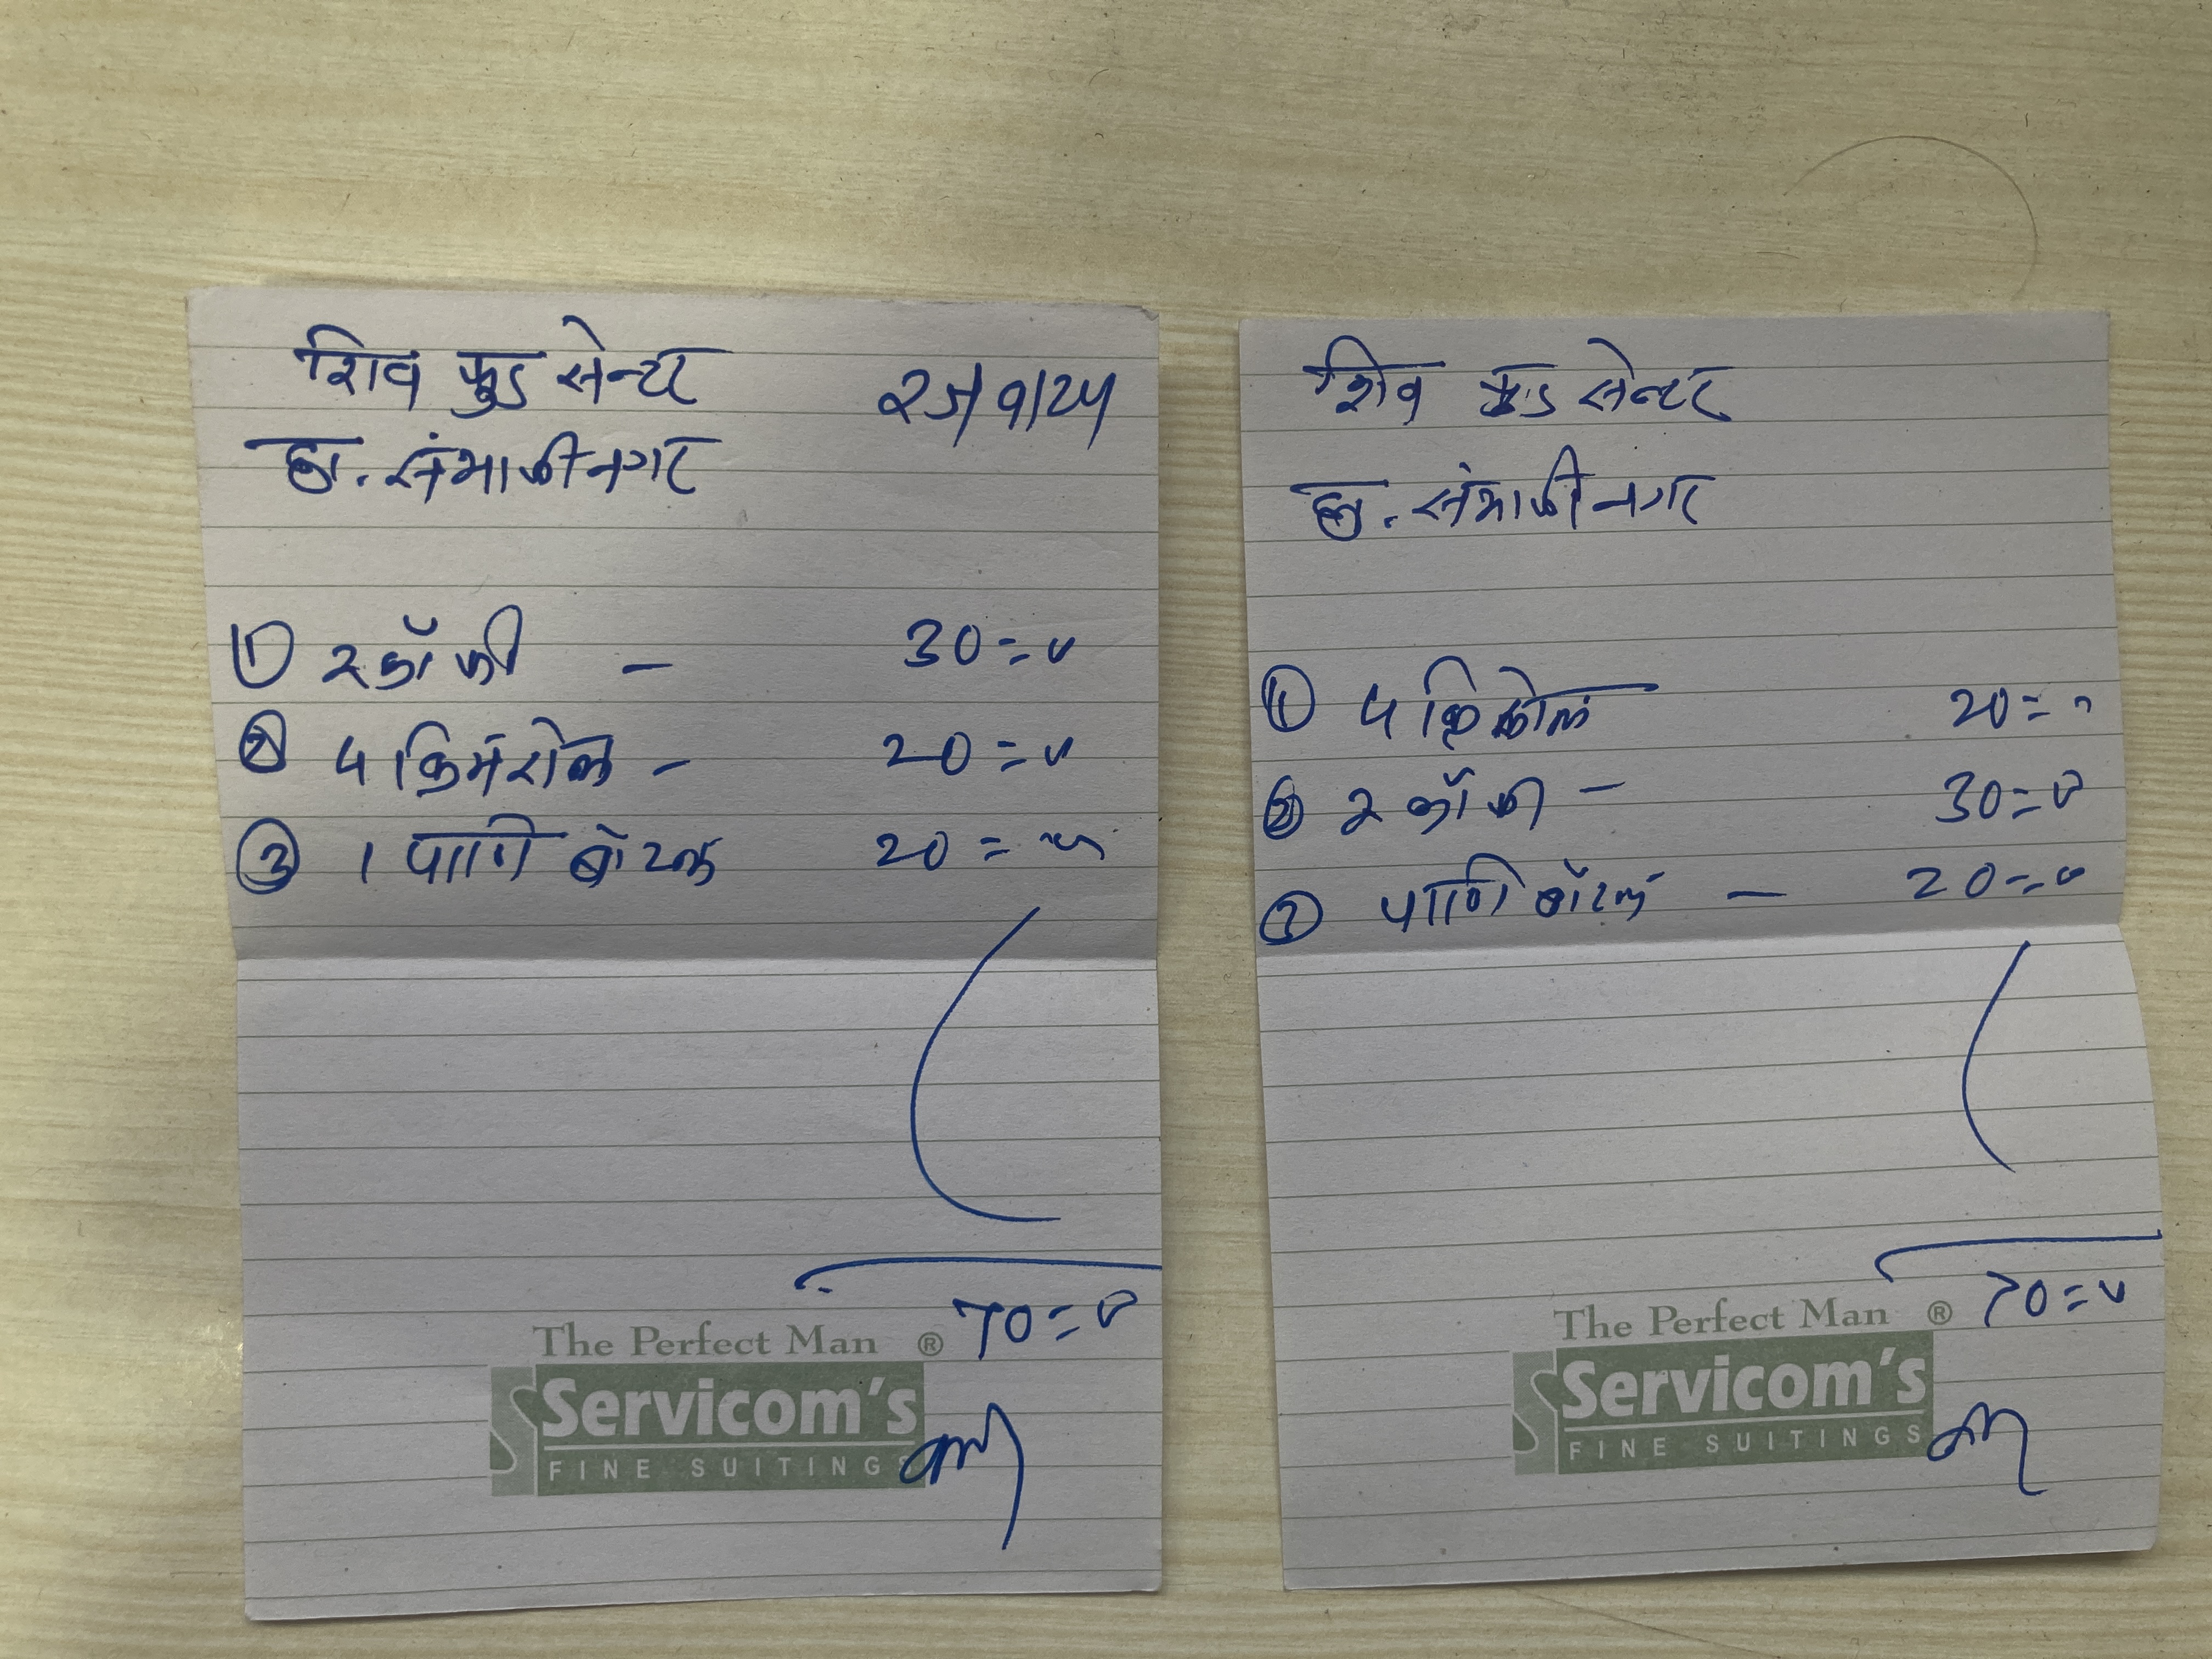 शिव फुड सेन्टर
छ. संभाजीनगर
① २ कॉफी – 30=00
② ५ क्रिमरोल – 20=00
③ 1 पाणि बॉटल 20=00
70=00
The Perfect Man ®
Servicom's
FINE SUITINGS
शिव फुड सेन्टर
छ. संभाजीनगर
① ५ क्रिमरोल 20=00
② २ कॉफी – 30=00
③ पाणि बॉटल – 20=00
70=00
The Perfect Man ®
Servicom's
FINE SUITINGS